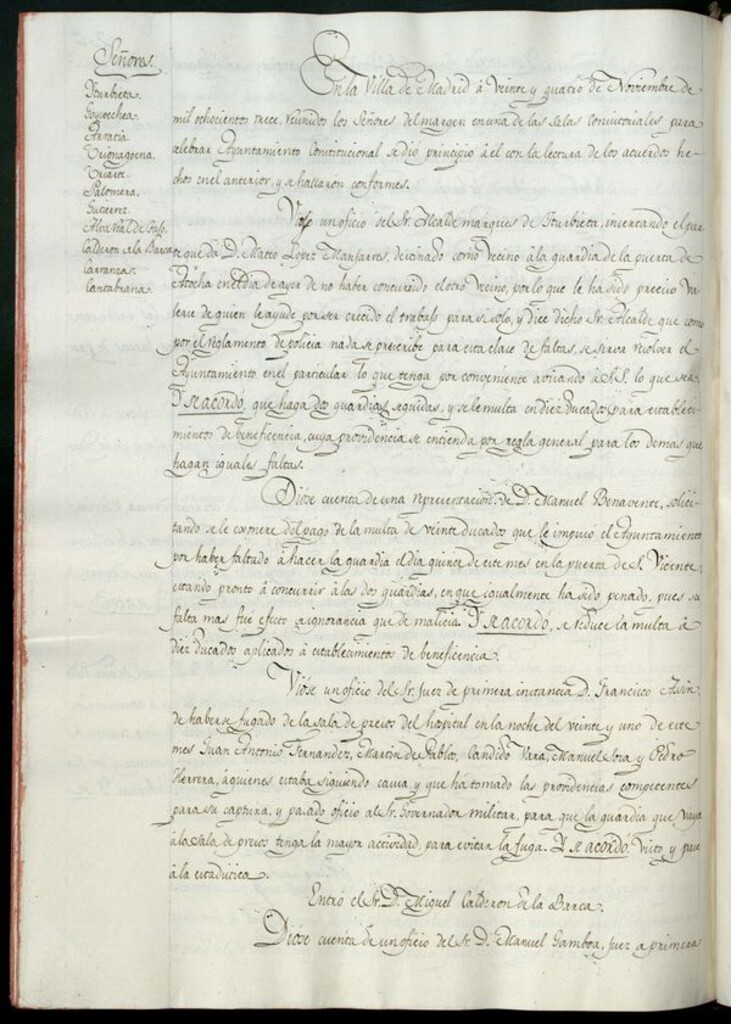 Señores.
Yturbieta.
Goycoechea.
Arratia.
Urionagoena.
Uriarte.
Palomera.
Gutierrez.
Calderon de la Barca
Carranza.
Cantabrana.
En la Villa de Madrid á Veinte y quatro de Noviembre de
mil ochocientos trece, reunidos los Señores del margen en una de las Salas Consistoriales para
celebrar Ayuntamiento Constitucional se dió principio á el con la lectura de los acuerdos he-
chos en el anterior, y se hallaron conformes.
Viose un oficio del Sr. Alcalde marques de Yturbieta, insertando el par
te que da D. Mateo Lopez Manjarres, destinado como vecino á la guardia de la puerta de
Atocha en el dia de ayer de no haber concurrido el otro vecino, por lo que le ha sido preciso va
lerse de quien le ayude por ser crecido el trabajo para si solo, y dice dicho Sr. Alcalde que como
por el reglamento de policia nada se prescribe para esta clase de faltas, se sirva resolver el
Ayuntamiento en el particular lo que tenga por conveniente avisando á S.S. lo que sea.
Y se acordó, que haga dos guardias seguidas, y se le multa en diez ducados para estableci-
mientos de beneficencia, cuya providencia se entienda por regla general para los demas que
hagan iguales faltas.
Dióse cuenta de una representacion de D. Manuel Benavente, solici-
tando se le exonere del pago de la multa de veinte ducados que le impuso el Ayuntamiento
por haber faltado á hacer la guardia el dia quince de este mes en la puerta de S. Vicente,
estando pronto á concurrir á las dos guardias, en que igualmente ha sido penado, pues su
falta mas fué efecto de ignorancia que de malicia. Y se acordó, se reduce la multa á
diez ducados aplicados á establecimientos de beneficencia.
Vióse un oficio del Sr. Juez de primera instancia D. Francisco
de haberse fugado de la sala de presos del hospital en la noche del veinte y uno de este
mes Juan Antonio Fernandez, Martin de Pablo, Candido Vara, Manuel Sosa y Pedro
Herrera, á quienes estaba siguiendo causa, y que ha tomado las providencias competentes
para su captura, y pasado oficio al Sr. Governador militar, para que la guardia que vaya
á la sala de presos tenga la mayor actividad, para evitar la fuga. Y se acordó, Visto, y pase
á la estadistica.
Entró el Sr. D. Miguel Calderon de la Barca.
Dióse cuenta de un oficio del Sr. D. Manuel Gamboa, Juez de primera